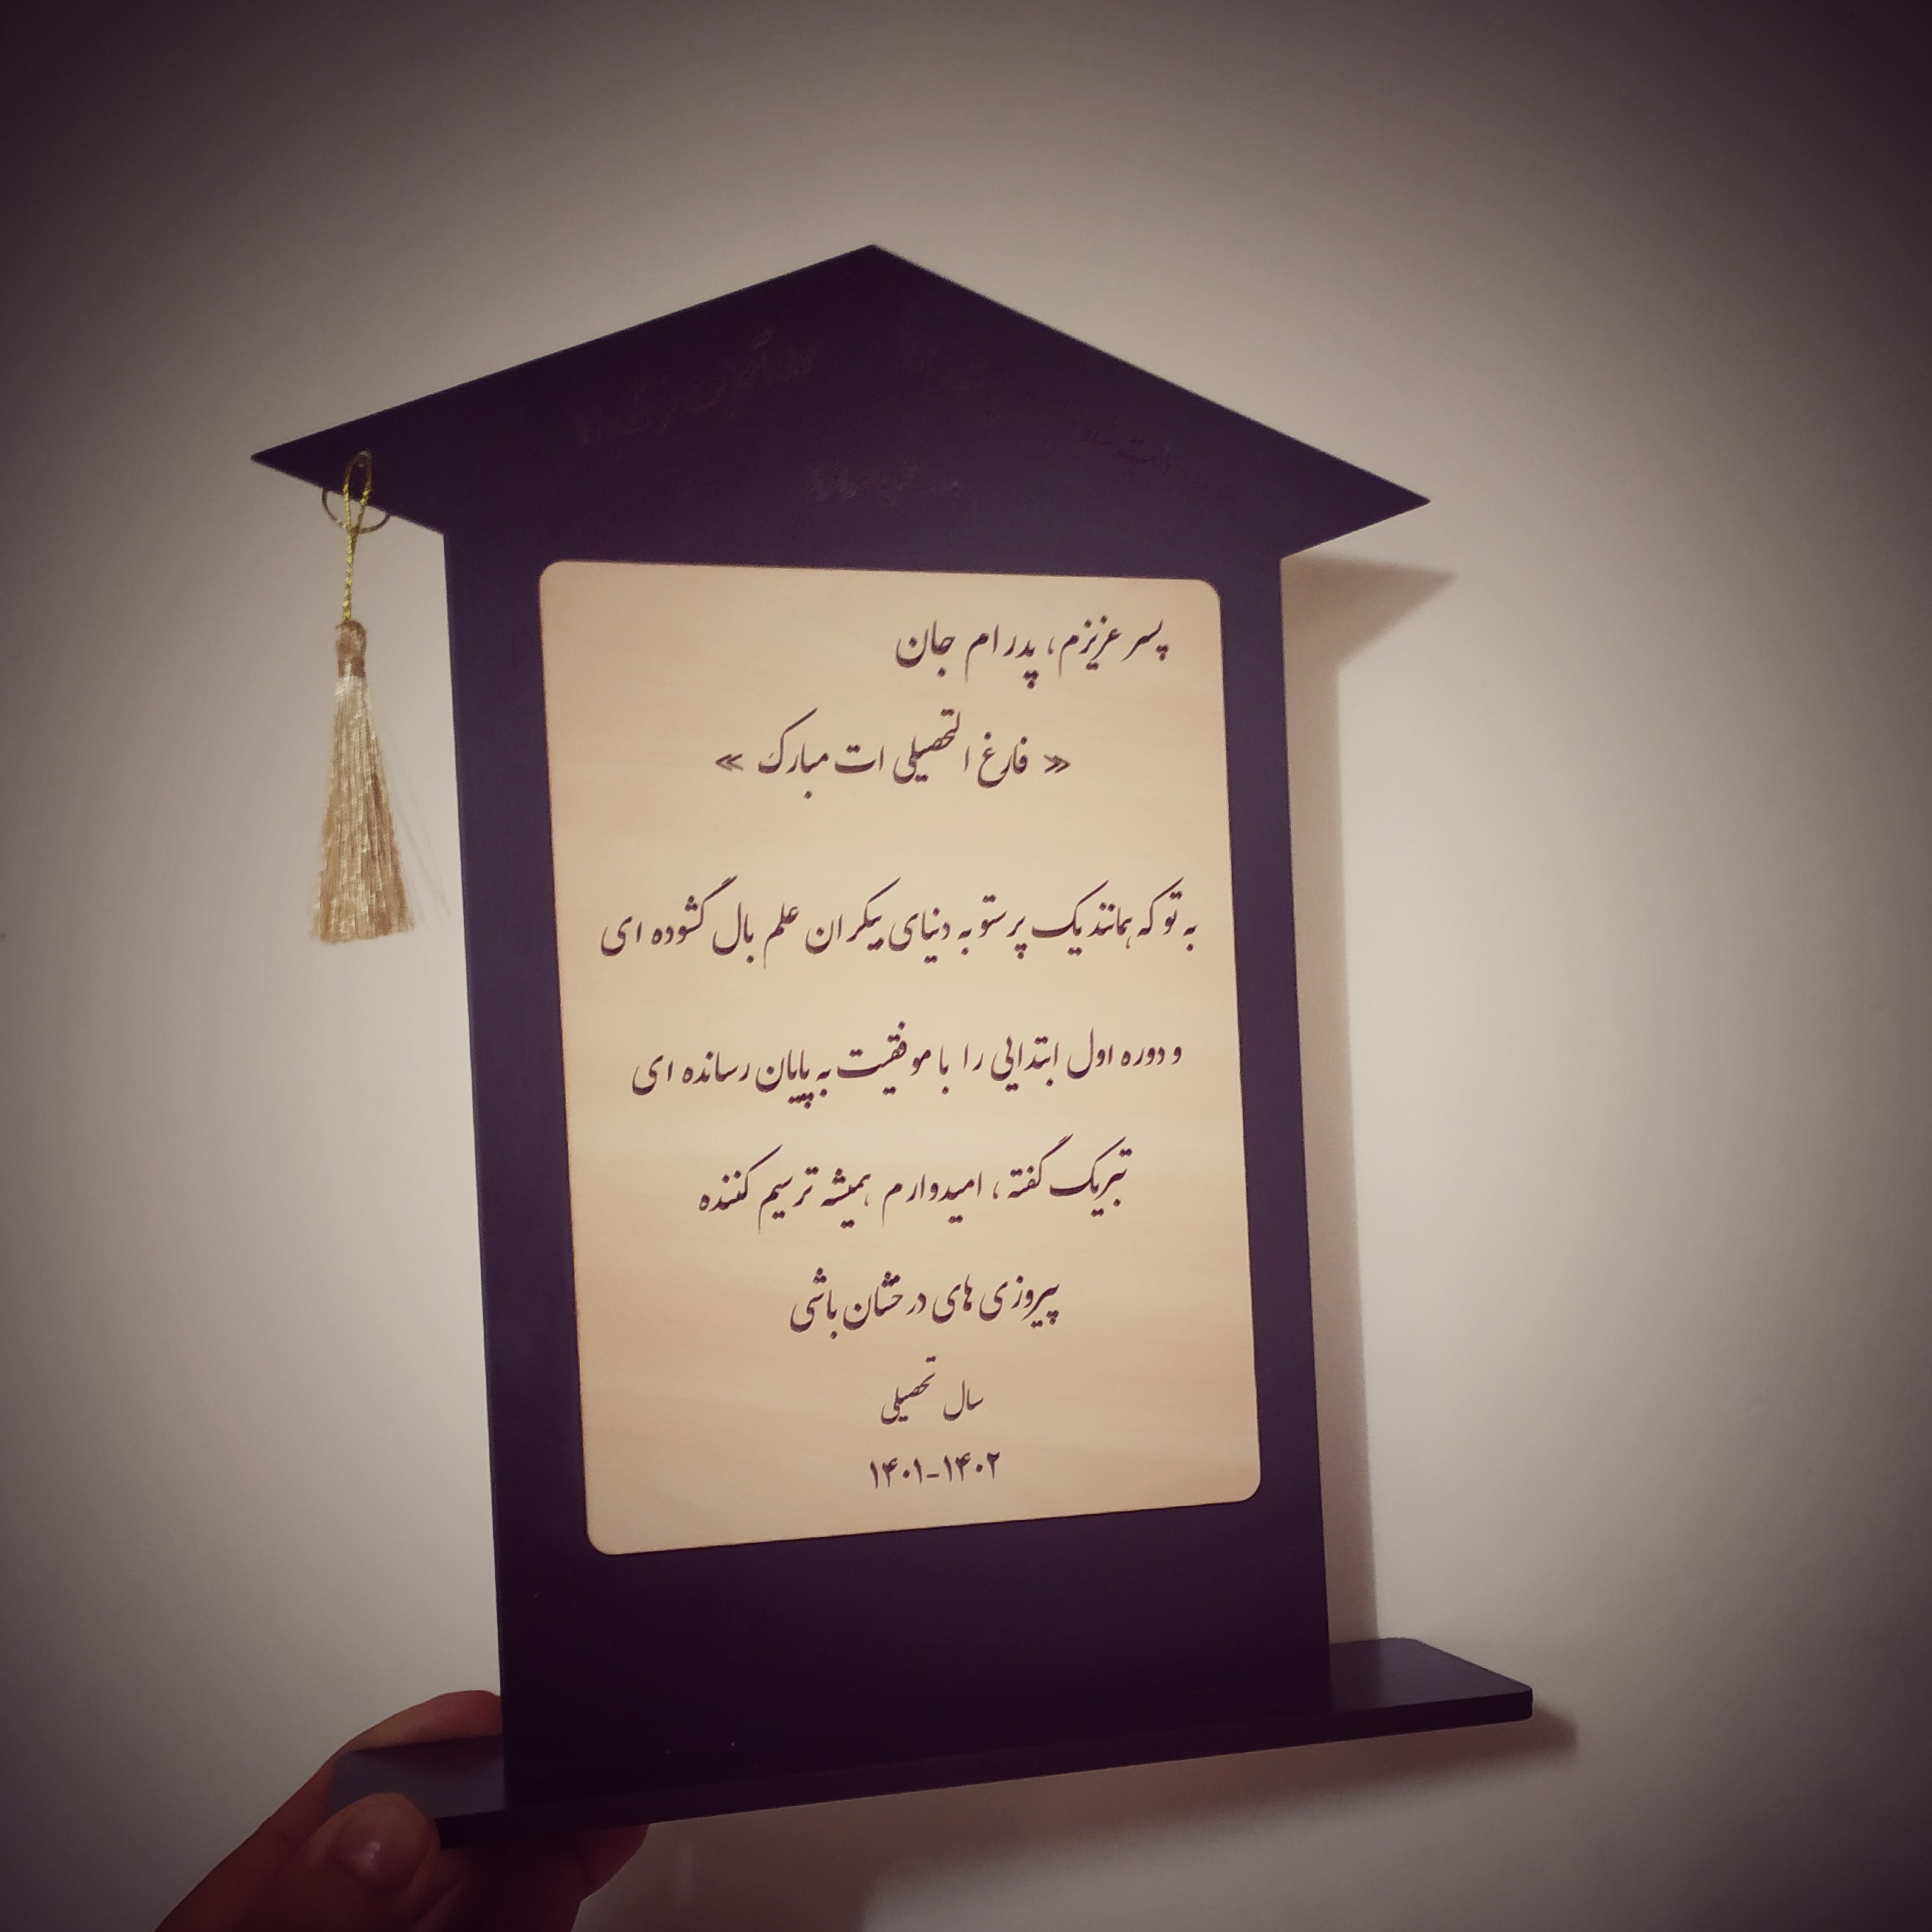 پسر عزیزم، پدرام جان
« فارغ التحصیلی ات مبارک »
به تو که همانند یک پرستو به دنیای بیکران علم بال گشوده ای
و دوره اول ابتدایی را با موفقیت به پایان رسانده ای
تبریک گفته، امیدوارم همیشه ترسیم کننده
پیروزی های درخشان باشی
سال تحصیلی
۱۴۰۱-۱۴۰۲